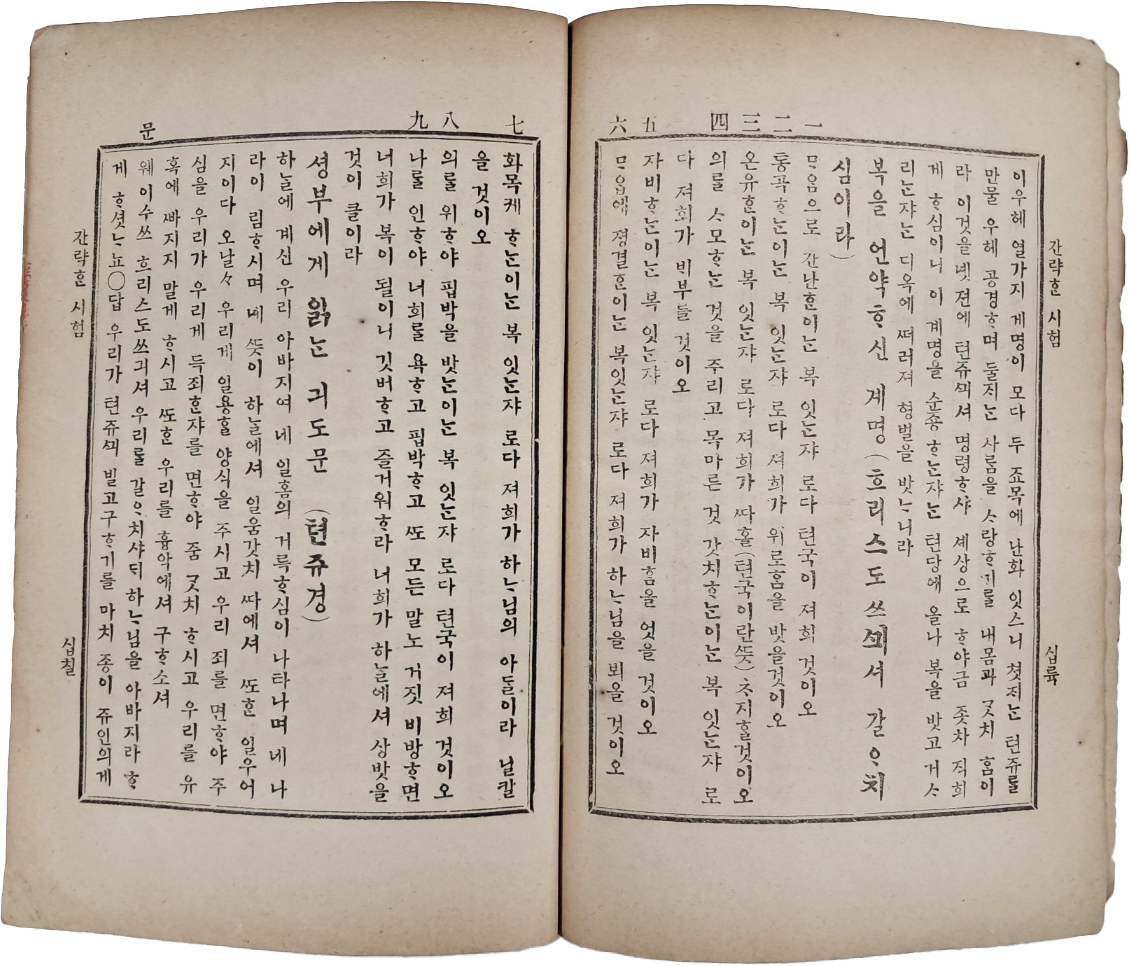 간략ᄒᆞᆫ 시험
십륙
이우헤 열가지 계명이 모다 두 죠목에 난화 잇스니 쳣ᄌᆡᄂᆞᆫ 텬쥬를
만물 우헤 공경ᄒᆞ며 둘ᄌᆡᄂᆞᆫ 사ᄅᆞᆷ을 ᄉᆞ랑ᄒᆞ기를 내몸과 ᄀᆞᆺ치 홈이
라 이것을 녯젼에 텬쥬ᄭᅴ셔 명령ᄒᆞ샤 셰상으로 ᄒᆞ야금 좃차 직희
게 ᄒᆞ심이니 이 계명을 슌죵ᄒᆞᄂᆞᆫ쟈ᄂᆞᆫ 텬당에 올나 복을 밧고 거ᄉᆞ
리ᄂᆞᆫ쟈ᄂᆞᆫ 디옥에 ᄯᅥ러져 형벌을 밧ᄂᆞ니라
복을 언약ᄒᆞ신 계명 (흐리스도쓰ᄭᅴ셔 갈ᄋᆞ치
심이라)
一 ᄆᆞ옴으로 간난ᄒᆞᆫ이ᄂᆞᆫ 복 잇ᄂᆞᆫ쟈 로다 텬국이 져희 것이오
二 통곡ᄒᆞᄂᆞᆫ이ᄂᆞᆫ 복 잇ᄂᆞᆫ쟈 로다 져희가 위로홈을 밧을것이오
三 온유ᄒᆞᆫ이ᄂᆞᆫ 복 잇ᄂᆞᆫ쟈 로다 져희가 ᄯᅡ흘(텬국이란ᄯᅳᆺ) ᄎᆞ지ᄒᆞᆯ것이오
四 의를 ᄉᆞ모ᄒᆞᄂᆞᆫ 것을 주리고 목마른 것 갓치ᄒᆞᄂᆞᆫ이ᄂᆞᆫ 복 잇ᄂᆞᆫ쟈 로
다 져희가 ᄇᆡ부들 것이오
五 자비ᄒᆞᄂᆞᆫ이ᄂᆞᆫ 복 잇ᄂᆞᆫ쟈 로다 져희가 자비홈을 엇을 것이오
六 ᄆᆞ옴에 졍결ᄒᆞᆫ이ᄂᆞᆫ 복잇ᄂᆞᆫ쟈 로다 져희가 하ᄂᆞ님을 뵈을 것이오
七 화목케 ᄒᆞᄂᆞᆫ이ᄂᆞᆫ 복 잇ᄂᆞᆫ쟈 로다 져희가 하ᄂᆞ님의 아ᄃᆞᆯ이라 닐ᄏᆞᆯ
을 것이오
八 의를 위ᄒᆞ야 핍박을 밧ᄂᆞᆫ이ᄂᆞᆫ 복 잇ᄂᆞᆫ쟈 로다 텬국이 져희 것이오
九 나를 인ᄒᆞ야 너희를 욕ᄒᆞ고 핍박ᄒᆞ고 ᄯᅩ 모든 말노 거짓 비방ᄒᆞ면
너희가 복이 될이니 깃버ᄒᆞ고 즐거워ᄒᆞ라 너희가 하ᄂᆞᆯ에셔 상밧을
것이 클이라
셩부에게 읽ᄂᆞᆫ 긔도문 (텬쥬경)
하ᄂᆞᆯ에 계신 우리 아바지여 네 일홈의 거륵ᄒᆞ심이 나타나며 네 나
라이 림ᄒᆞ시며 네 ᄯᅳᆺ이 하ᄂᆞᆯ에셔 일움갓치 ᄯᅡ에셔 ᄯᅩᄒᆞᆫ 일우어
지이다 오날々 우리게 일용ᄒᆞᆯ 양식을 주시고 우리 죄를 면ᄒᆞ야 주
심을 우리가 우리게 득죄ᄒᆞᆫ쟈를 면ᄒᆞ야 줌 ᄀᆞᆺ치 ᄒᆞ시고 우리를 유
혹에 ᄲᅡ지지 말게 ᄒᆞ시고 ᄯᅩᄒᆞᆫ 우리를 흉악에셔 구ᄒᆞ소셔
문 웨 이수쓰 흐리스도쓰ᄭᅴ셔 우리를 갈ᄋᆞ치샤ᄃᆡ 하ᄂᆞ님을 아바지라 ᄒᆞ
게 ᄒᆞ셧ᄂᆞ뇨○답 우리가 텬쥬ᄭᅴ 빌고구ᄒᆞ기를 마치 죵이 쥬인의게
간략ᄒᆞᆫ 시험
십칠